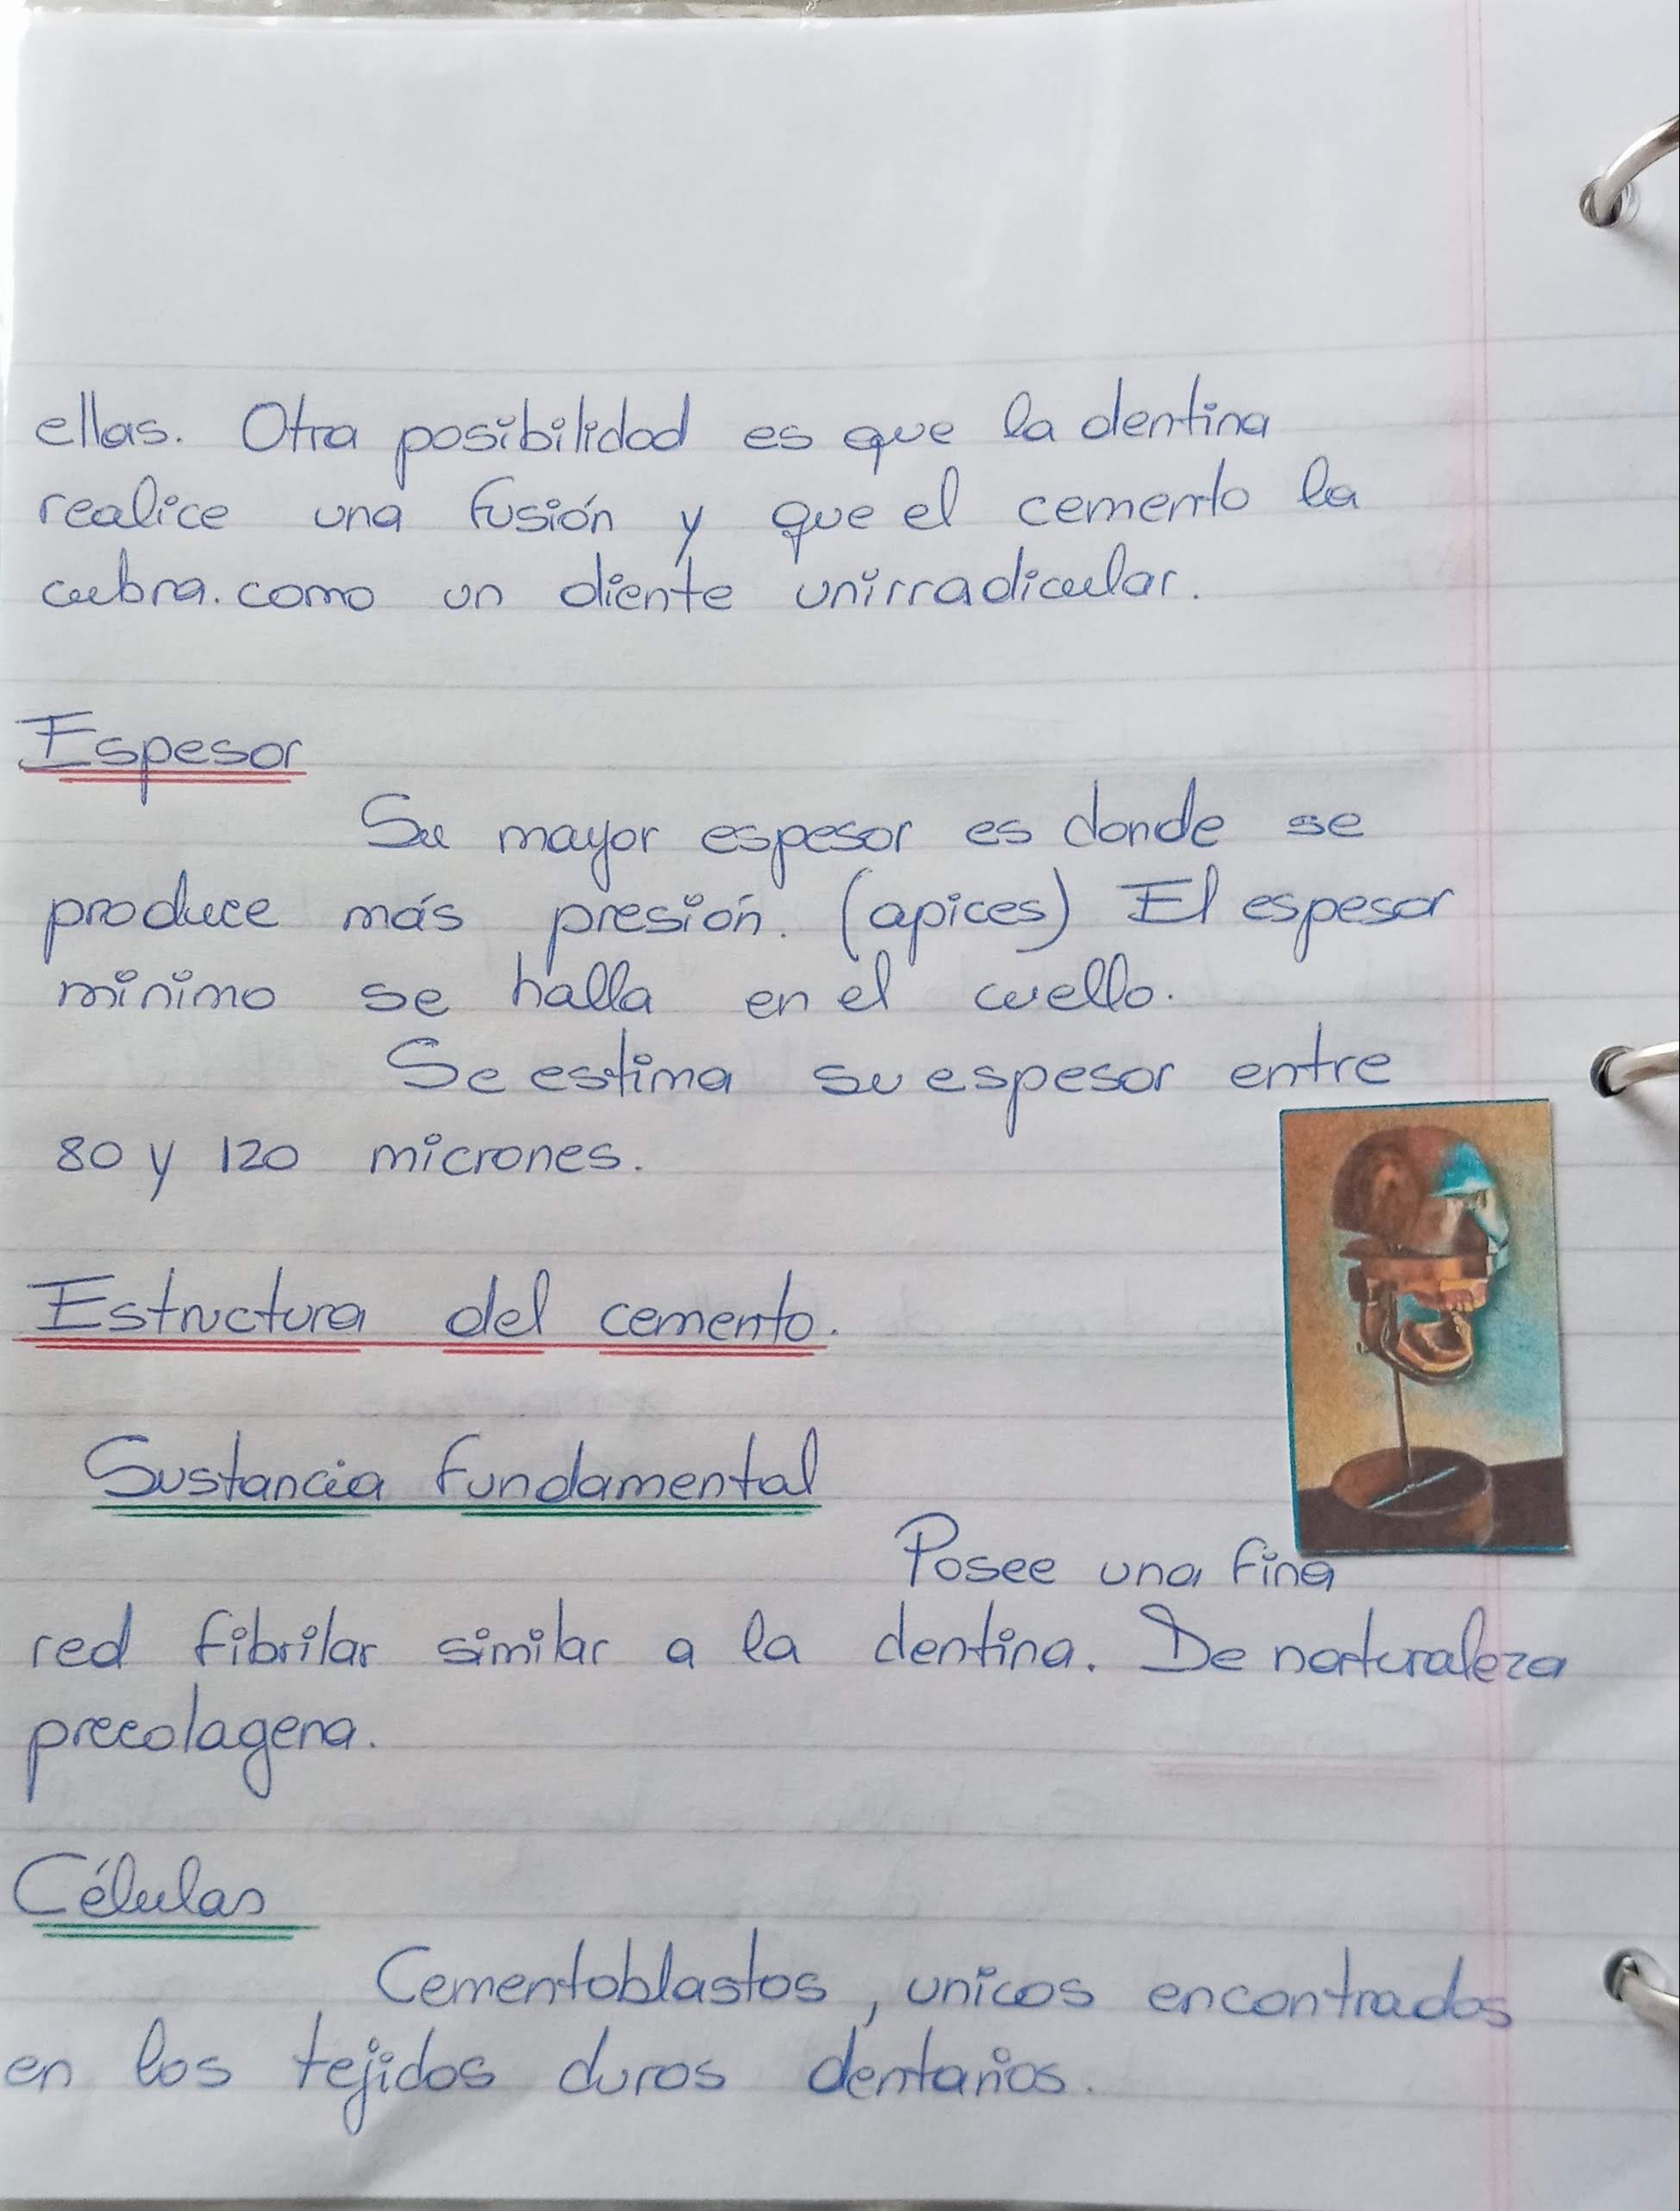 ellas. Otra posibilidad es que la dentina
realice una fusión y que el cemento la
cubra. como un diente unirradicular.
Espesor
Su mayor espesor es donde se
produce más presión. (apices) El espesor
minimo se halla en el cuello.
Se estima su espesor entre
80 y 120 micrones.
Estructura del cemento.
Sustancia fundamental
Posee una fina
red fibrilar similar a la dentina. De naturaleza
precolagena.
Células
Cementoblastos, unicos encontrados
en los tejidos duros dentarios.